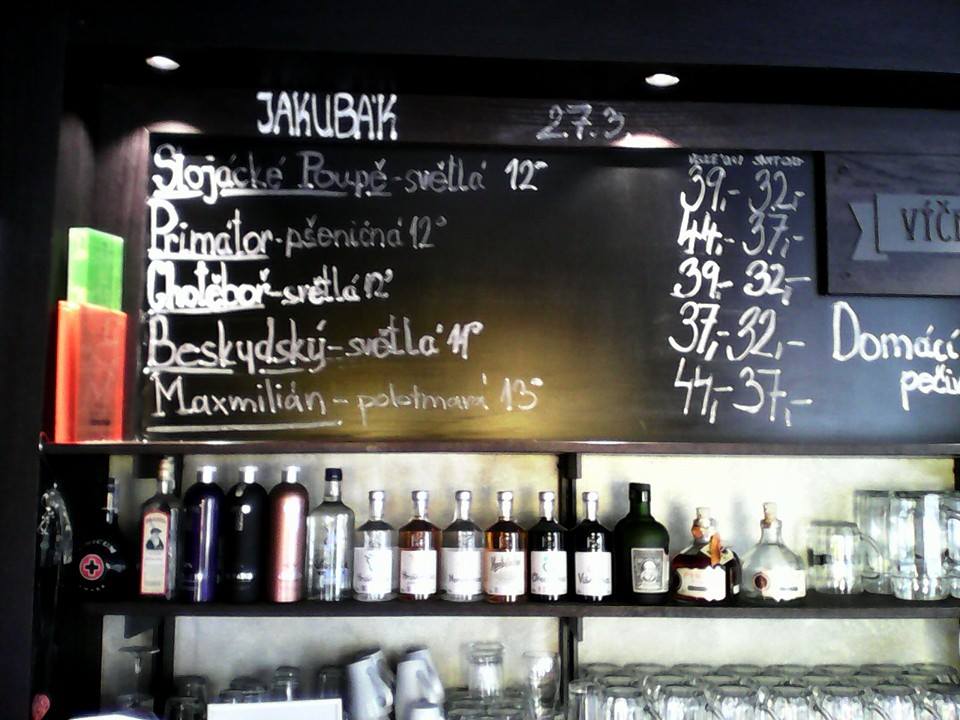 JAKUBÁK 27.3.
Slojácké Poupě - světlá 12° 39,- 32,-
Primátor - pšeničná 12° 44,- 37,-
Chotěboř - světlá 12° 39,- 32,-
Beskydský - světlá 11° 37,- 32,-
Maxmilián - polotmavá 13° 44,- 37,-
VÍČ
Domácí
peči